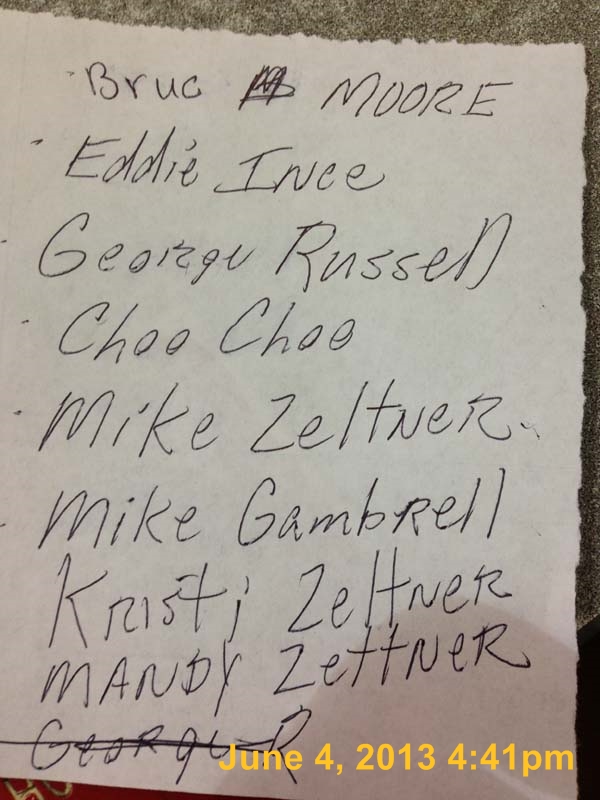 Bruc MOORE
Eddie Ince
George Russell
Choo Choo
Mike Zeltner
Mike Gambrell
Kristi Zeltner
MANDY Zettner
George R
June 4, 2013 4:41pm